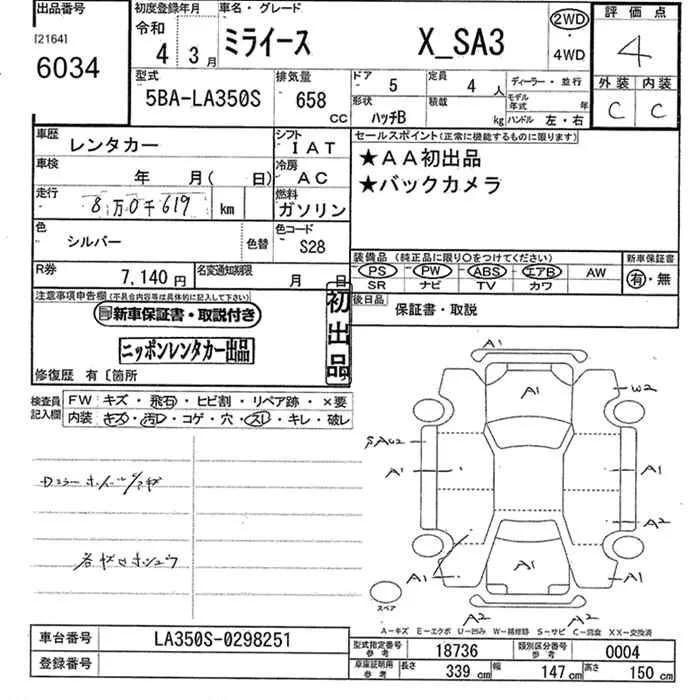 出品番号
[2164]
6034
初度登録年月
令和
4 3月
車名・グレード
ミライース X_SA3
2WD
・
4WD
評価点
4
外装 内装
C C
型式
5BA-LA350S
排気量
658
cc
ドア 5
定員 4 人
ディーラー・並行
形状 ハッチB
積載 kg
モデル年式 年
ハンドル 左・右
車歴 レンタカー
シフト IAT
車検 年 月( 日)
冷房 AC
走行 8万0千619 km
燃料 ガソリン
色 シルバー
色替
色コード S28
R券 7,140円
名変通知期限 月 日
セールスポイント(正常に機能するものに限ります)
★AA初出品
★バックカメラ
装備品 (純正品に限り○をつけてください)
PS PW ABS エアB AW
SR ナビ TV カワ
新車保証書
有・無
後日品 保証書・取説
注意事項申告欄(不具合内容等は具体的に記入して下さい)
新車保証書・取説付き
ニッポンレンタカー出品
初出品
修復歴 有〔箇所
検査員記入欄
FW キズ・飛石・ヒビ割・リペア跡・×要
内装 キズ・汚レ・コゲ・穴・スレ・キレ・破レ
A1
A1
W2
A1
A1
A2
A1
A1
A1
A2
A2
スペア
A-キズ E-エクボ U-凹み W-補修跡 S-サビ C-腐食 XX-交換済
車台番号 LA350S-0298251
登録番号
型式指定番号 参考 18736
類別区分番号 参考 0004
車庫証明用 参考
長さ 339 cm
幅 147 cm
高さ 150 cm